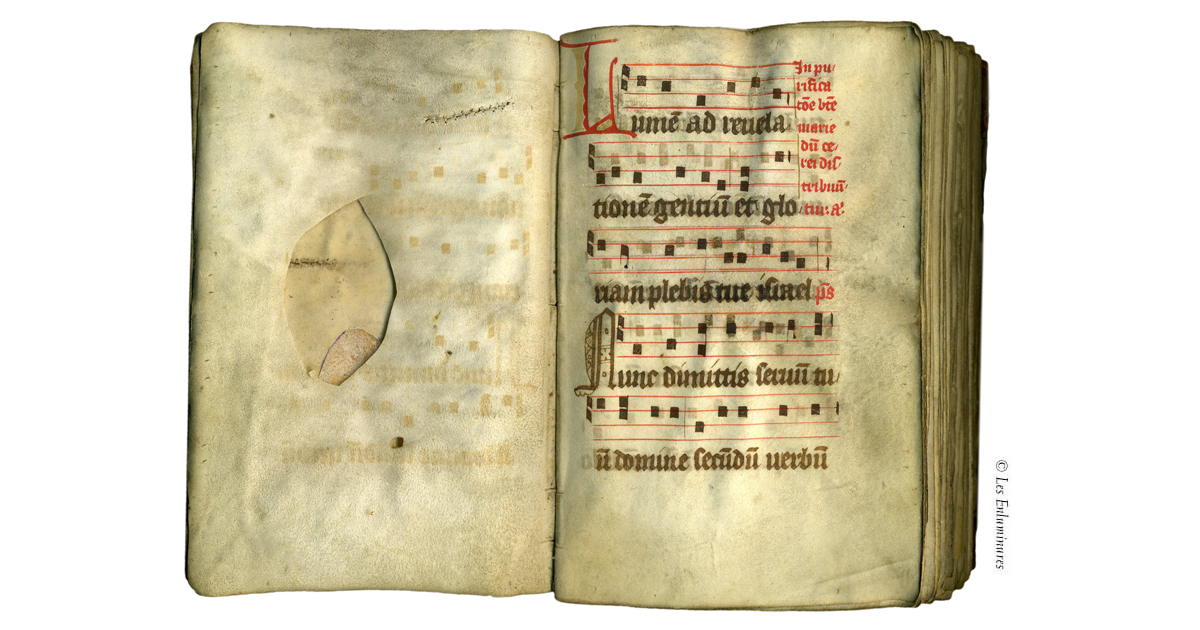 In pu/
rifica
tōe bt̄e
marie
dū ce/
rei dis/
tribuū/
tur: a͛.
Lumē ad reuela
tionē gentiū et glo
riam plebis tue israel p̄s
Nunc dimittis seruū tu/
ū domine secūdū uerbū
© Les Enluminures